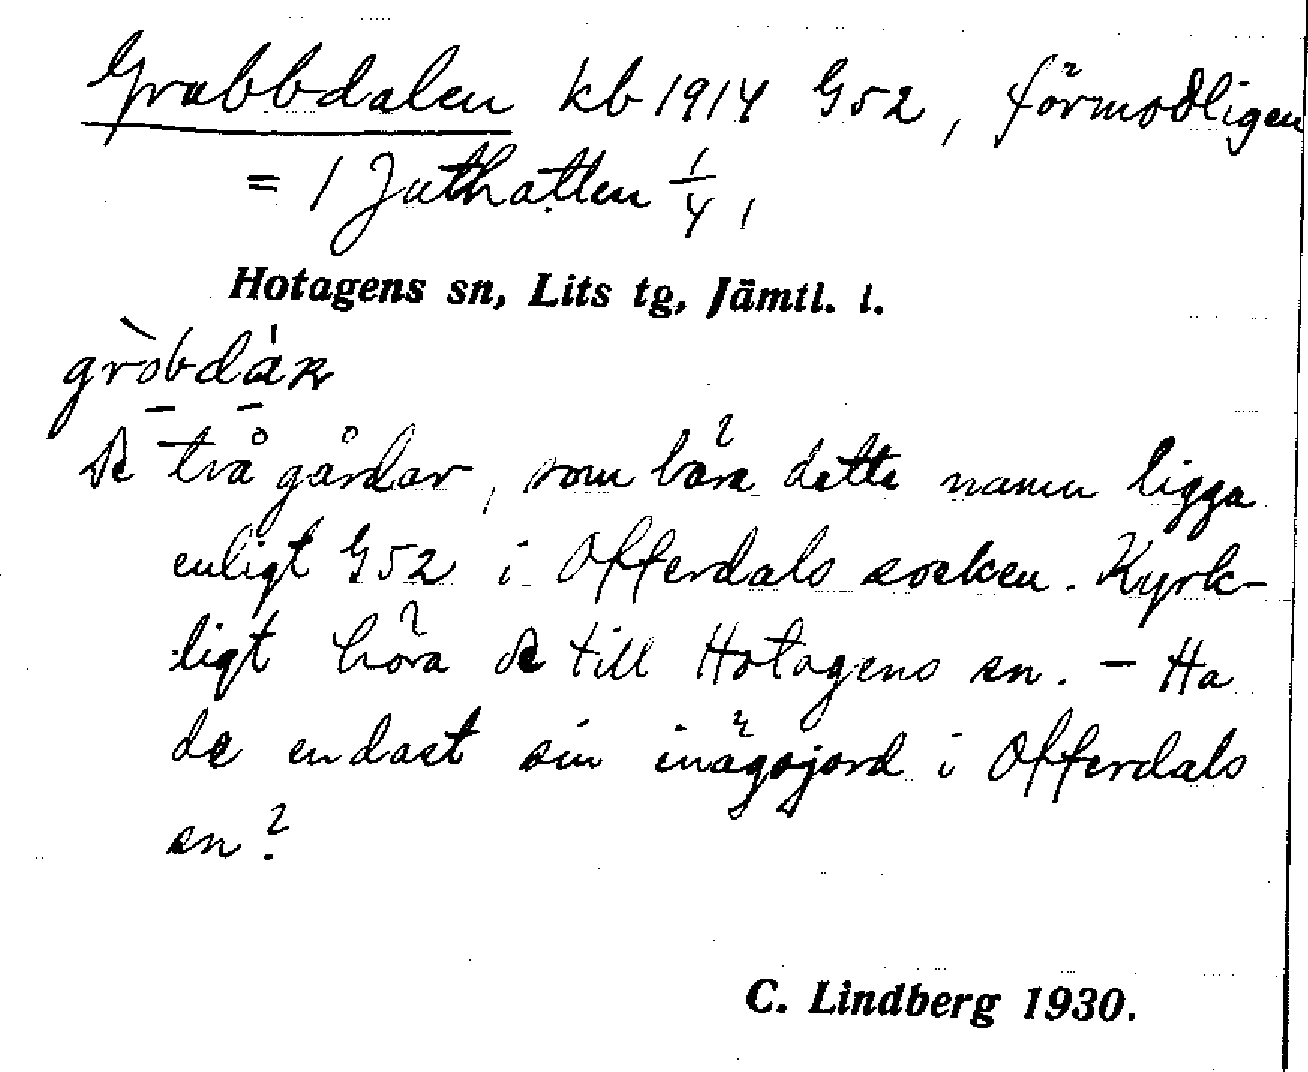 Grubbdalen kb 1914 G52, förmodligen
= 1 Juthatten 1/4,
Hotagens sn, Lits tg, Jämtl. l.
De två gårdar, som bära detta namn ligga
enligt G52 i Offerdals socken. Kyrk-
ligt höra de till Hotagens sn. – Ha
de endast sin inägojord i Offerdals
sn?
C. Lindberg 1930.